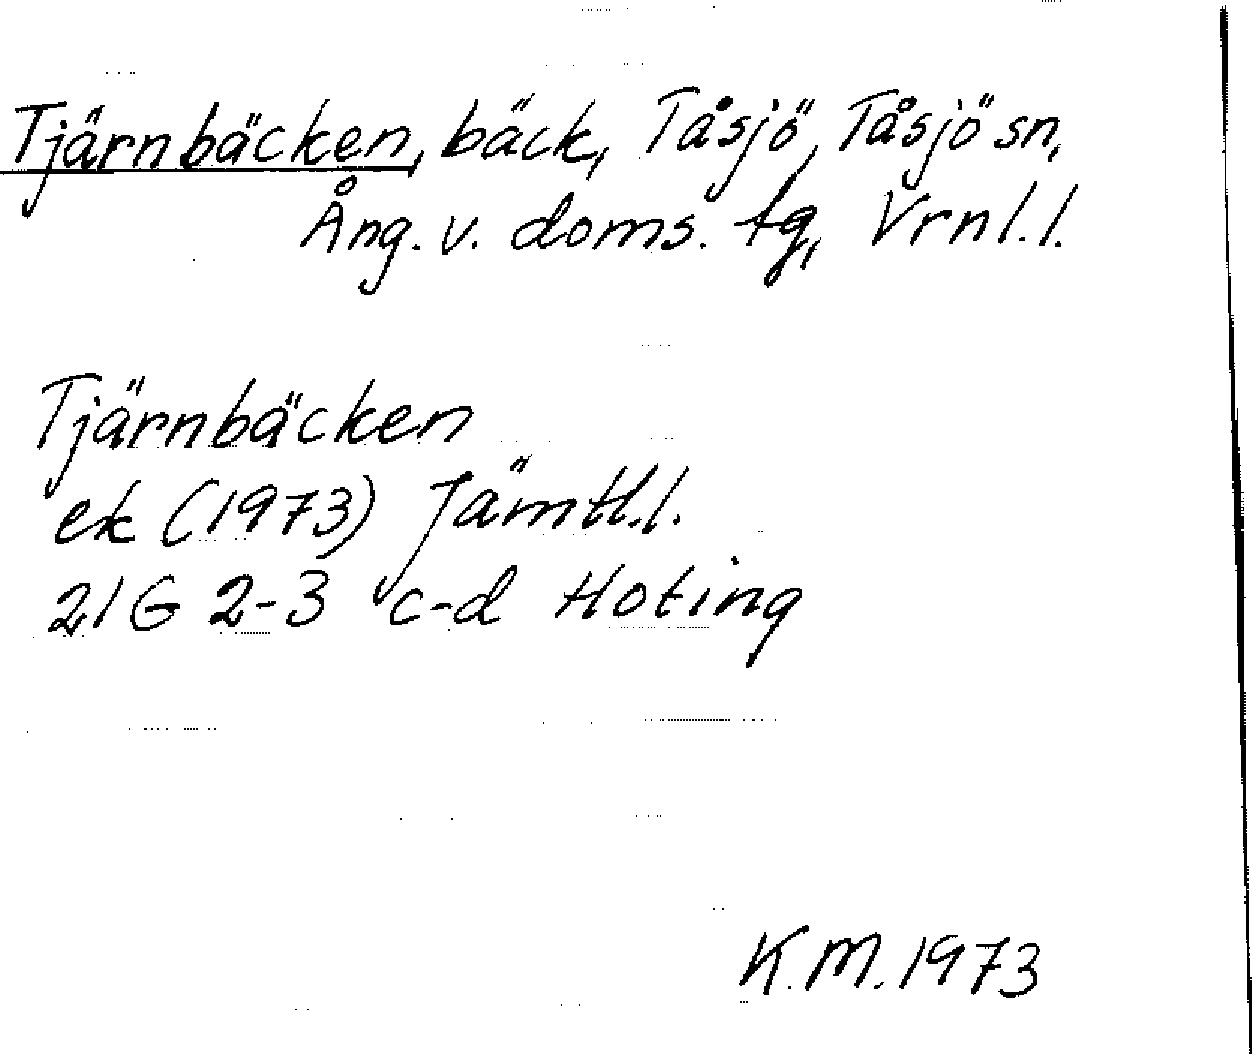 Tjärnbäcken, bäck, Tåsjö, Tåsjö sn,
Ång. v. doms. tg, Vrnl.l.
Tjärnbäcken
ek (1973) Jämtl.l.
21G 2-3 c-d Hoting
K.M. 1973